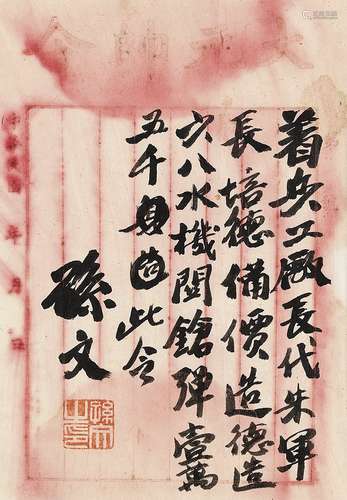 大元帥令
着兵工廠長代朱軍
長培德備價造德造
六八水機關鎗彈壹萬
五千具造此令
孫文
孫文之印
年 月 日